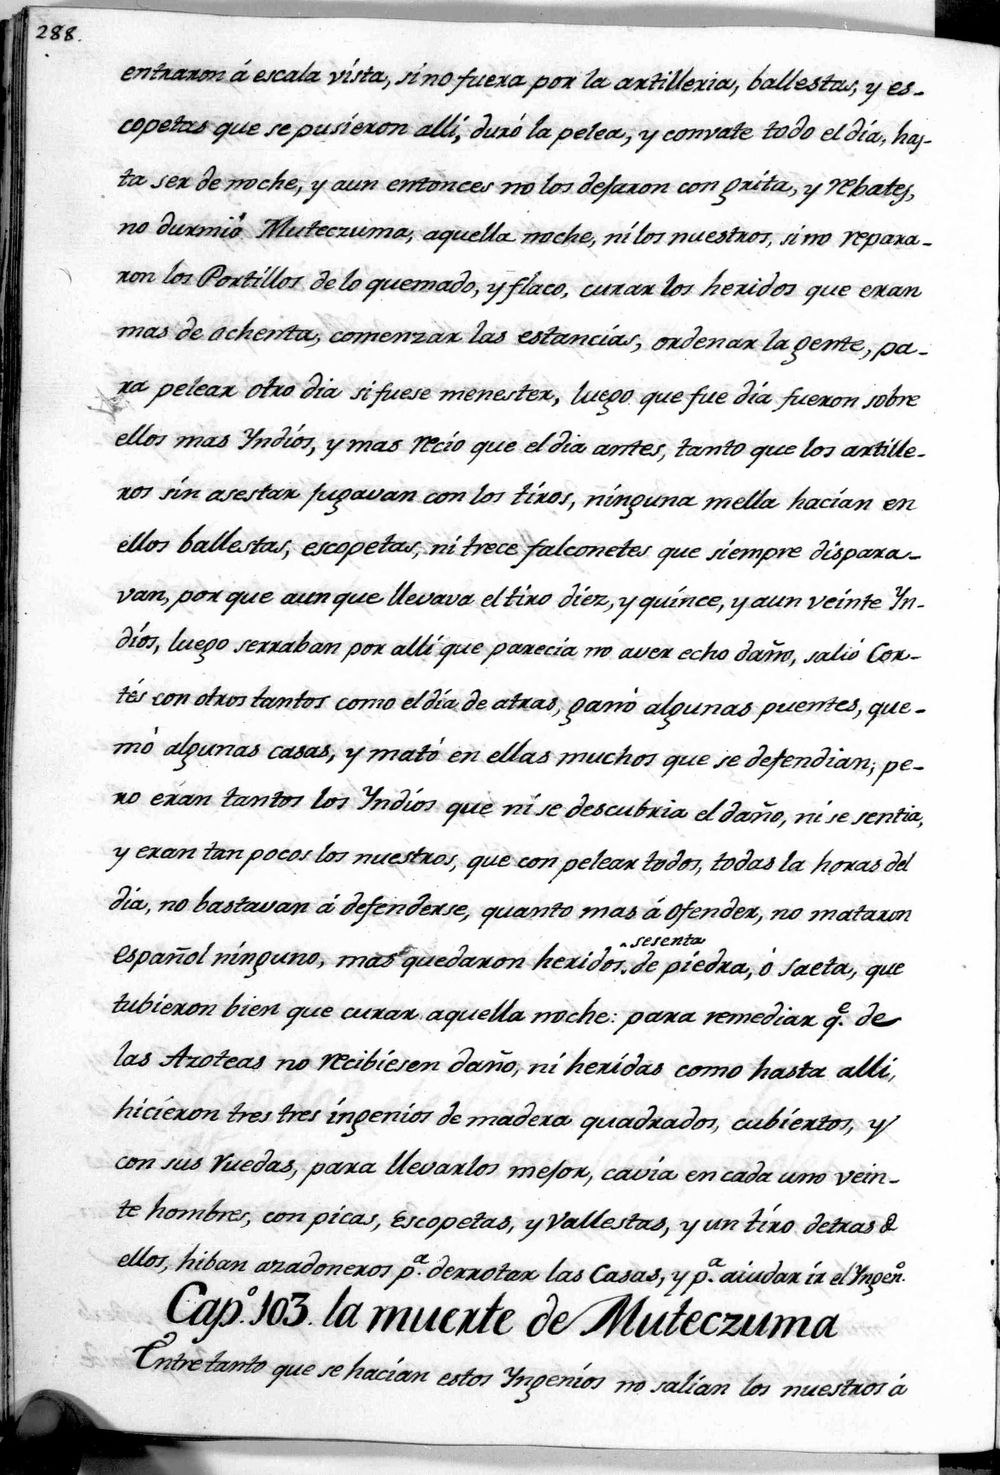 288.
entraron á escala vista, sino fuera por la artilleria, ballestas, y es-
copetas que se pusieron alli, duró la pelea, y convate todo el día, has-
ta ser de noche, y aun entonces no los dejaron con grita, y rebates,
no durmió Muteczuma, aquella noche, ni los nuestros, sino repara-
ron los Portillos de lo quemado, y flaco, curar los heridos que eran
mas de ochenta, comenzar las estancias, ordenar la gente, pa-
ra pelear otro dia si fuese menester, luego que fue día fueron sobre
ellos mas Yndios, y mas recio que el dia antes, tanto que los artille-
ros sin asestar jugavan con los tiros, ninguna mella hacian en
ellos ballestas, escopetas, ni trece falconetes que siempre dispara-
van, por que aunque llevava el tiro diez, y quince, y aun veinte Yn-
dios, luego serraban por alli que parecia no aver echo daño, salió Cor-
tés con otros tantos como el día de atras, ganó algunas puentes, que-
mó algunas casas, y mató en ellas muchos que se defendian; pe-
ro eran tantos los Yndios que ni se descubria el daño, ni se sentia,
y eran tan pocos los nuestros, que con pelear todos, todas la horas del
dia, no bastavan á defenderse, quanto mas á ofender, no mataron
español ninguno, mas quedaron heridos sesenta de piedra, ó saeta, que
tubieron bien que curar aquella noche: para remediar q.e de
las Azoteas no recibiesen daño, ni heridas como hasta alli,
hicieron tres tres ingenios de madera quadrados, cubiertos, y
con sus ruedas, para llevarlos mejor, cavia en cada uno vein-
te hombres, con picas, Escopetas, y Vallestas, y un tiro detras d
ellos, hiban azadoneros p.a derrotar las Casas, y p.a aiudar ir el Yngen.o
Cap.o 103. la muerte de Muteczuma
Entre tanto que se hacian estos Yngenios no salian los nuestros á